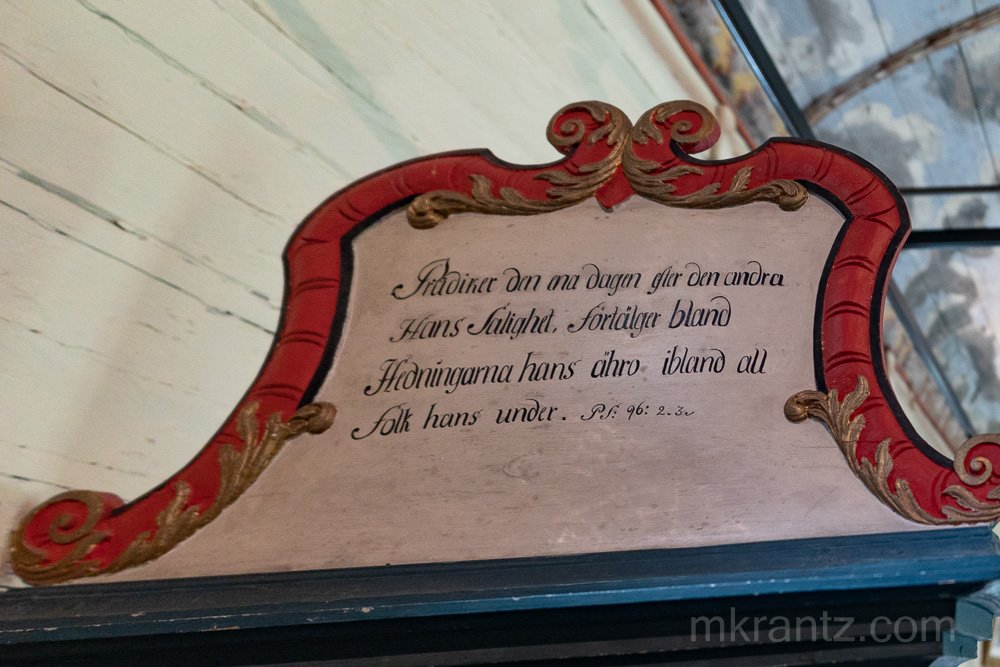 Prädiker den ena dagen efter den andra
Hans Salighet, förtälger bland
Hedningarna hans ähro ibland all
folk hans under. P.s: 96: 2.3.
mkrantz.com